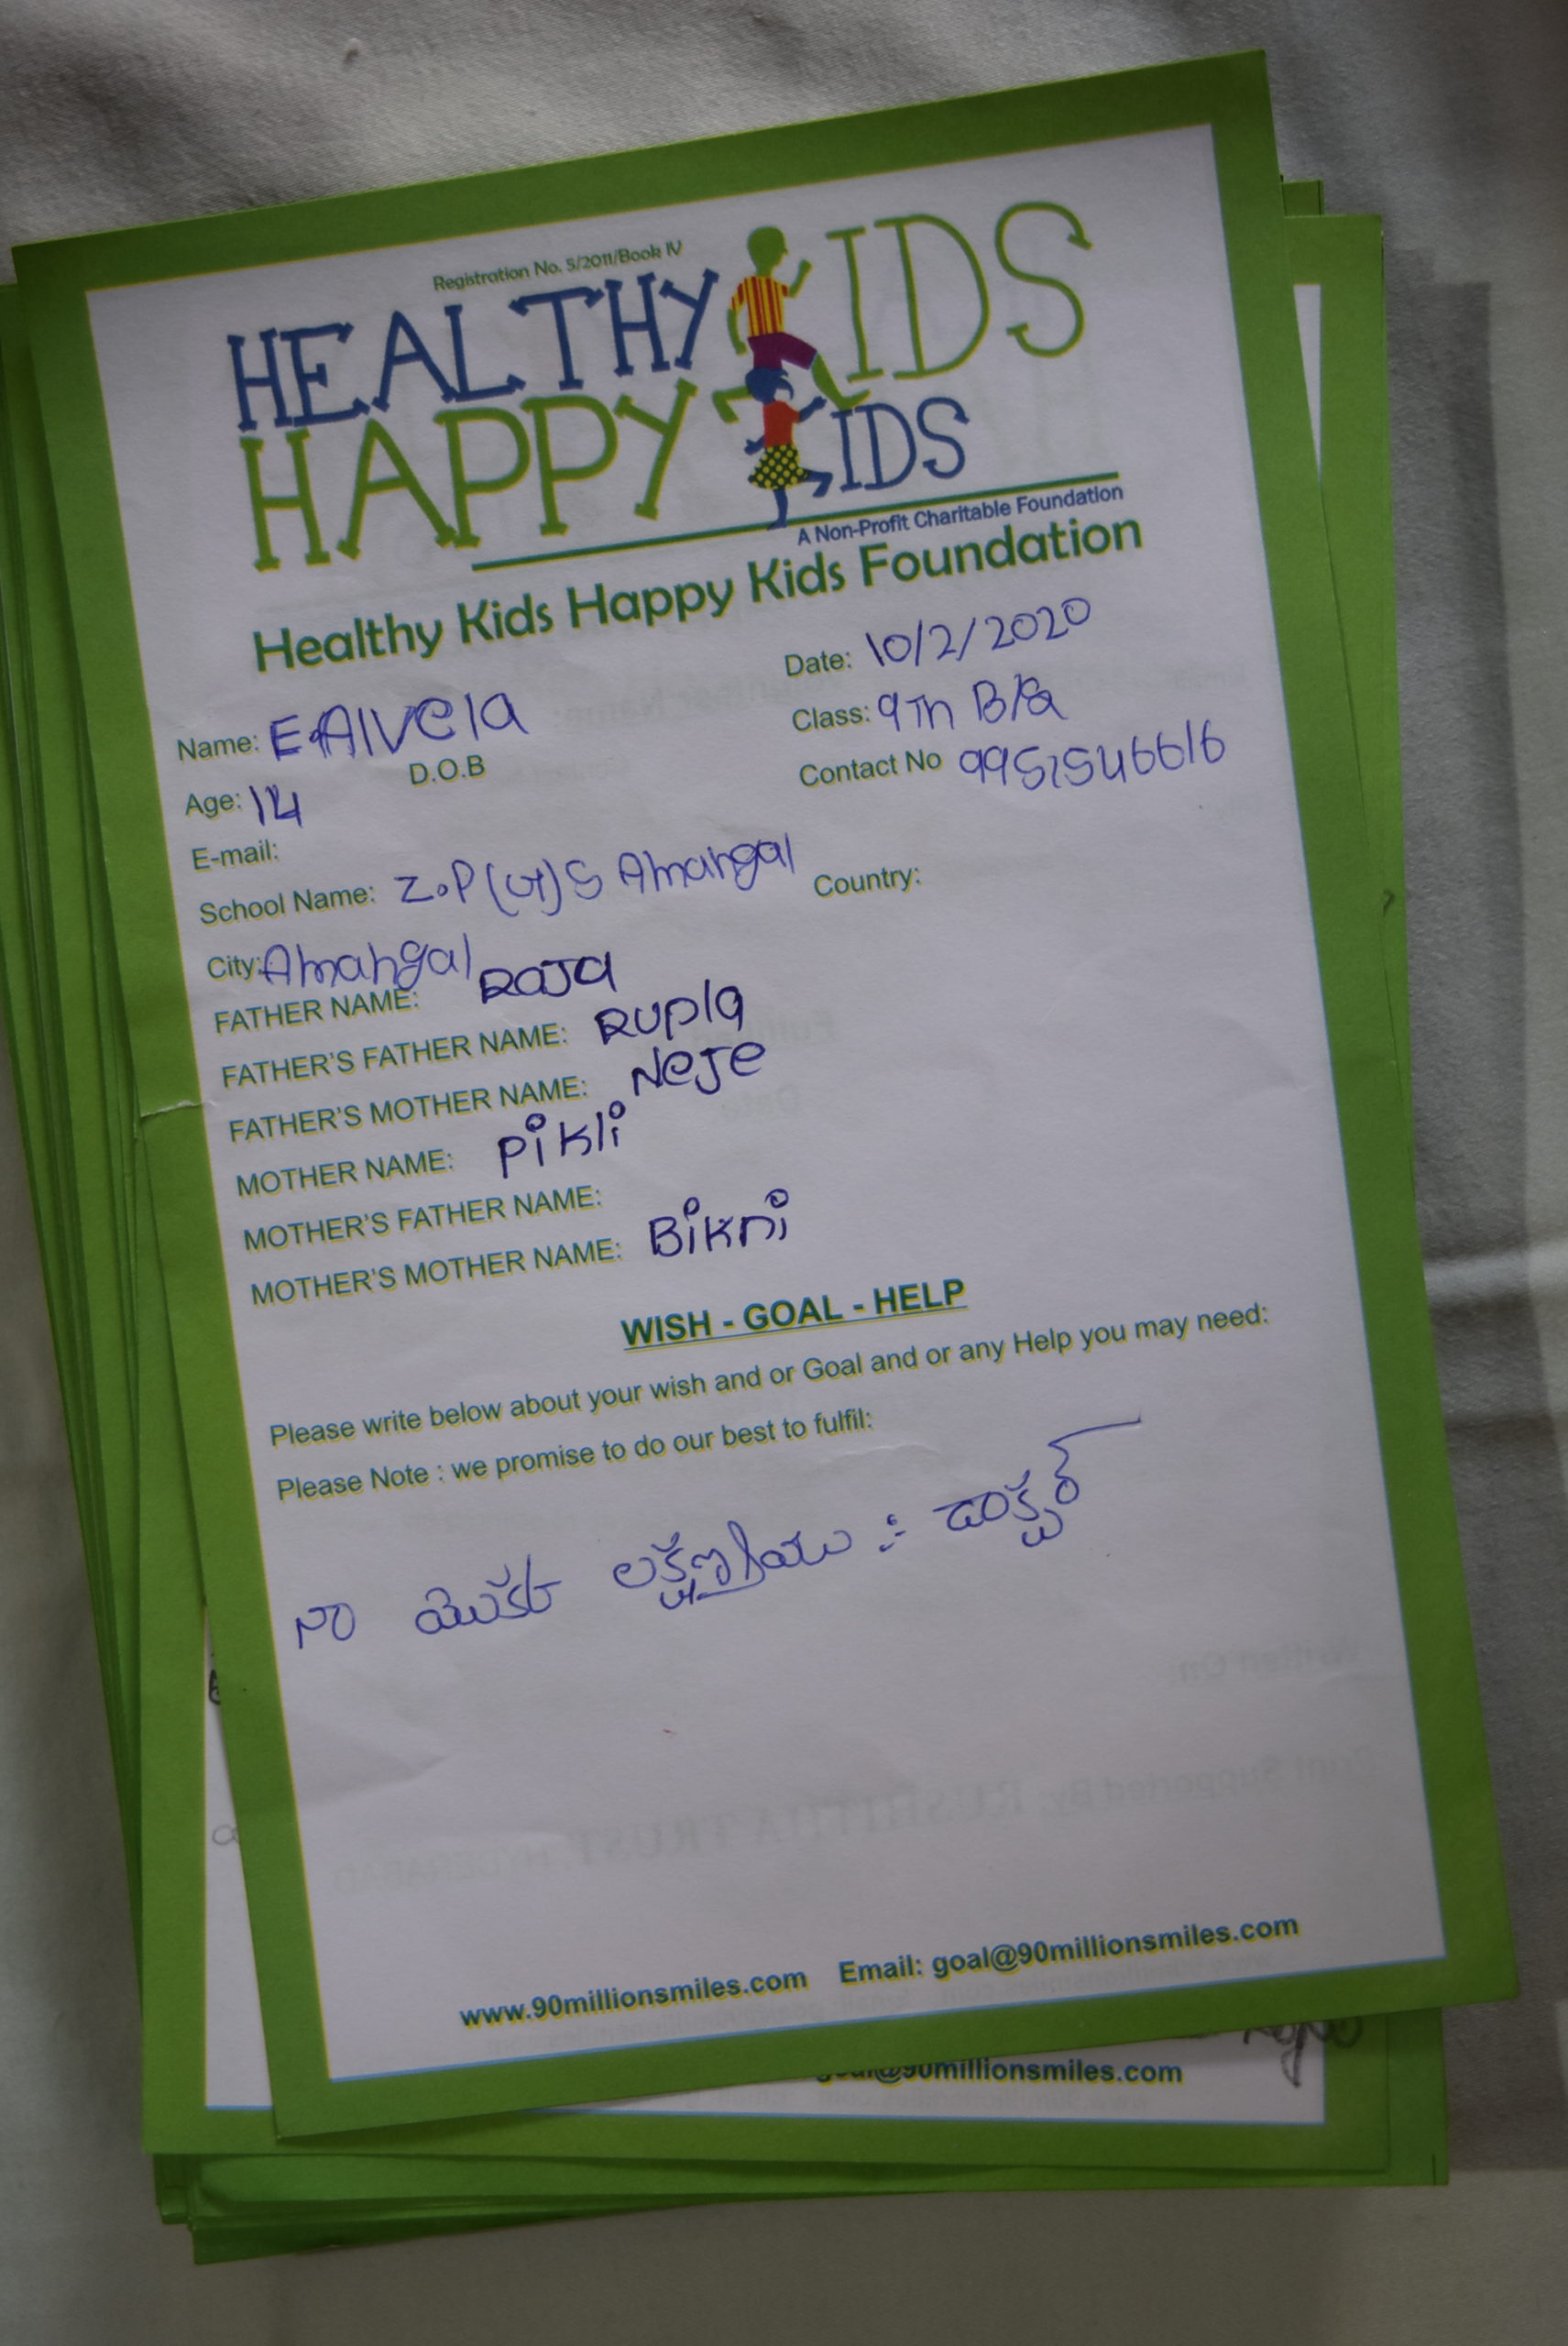 Registration No. 5/2011/Book IV
HEALTHY KIDS
HAPPY KIDS
A Non-Profit Charitable Foundation
Healthy Kids Happy Kids Foundation
Date: 10/2/2020
Name: E.Alvela
Class: 9Th B/
D.O.B
Age: 14
Contact No 9951546616
E-mail:
School Name: Z.P(G)S Amangal
Country:
City: Amangal
FATHER NAME: Raja
FATHER'S FATHER NAME: Rupla
FATHER'S MOTHER NAME: Neje
MOTHER NAME: Pikli
MOTHER'S FATHER NAME:
MOTHER'S MOTHER NAME: Bikni
WISH - GOAL - HELP
Please write below about your wish and or Goal and or any Help you may need:
Please Note : we promise to do our best to fulfil:
నా యొక్క :- డాక్టర్
www.90millionsmiles.com Email: goal@90millionsmiles.com
@90millionsmiles.com